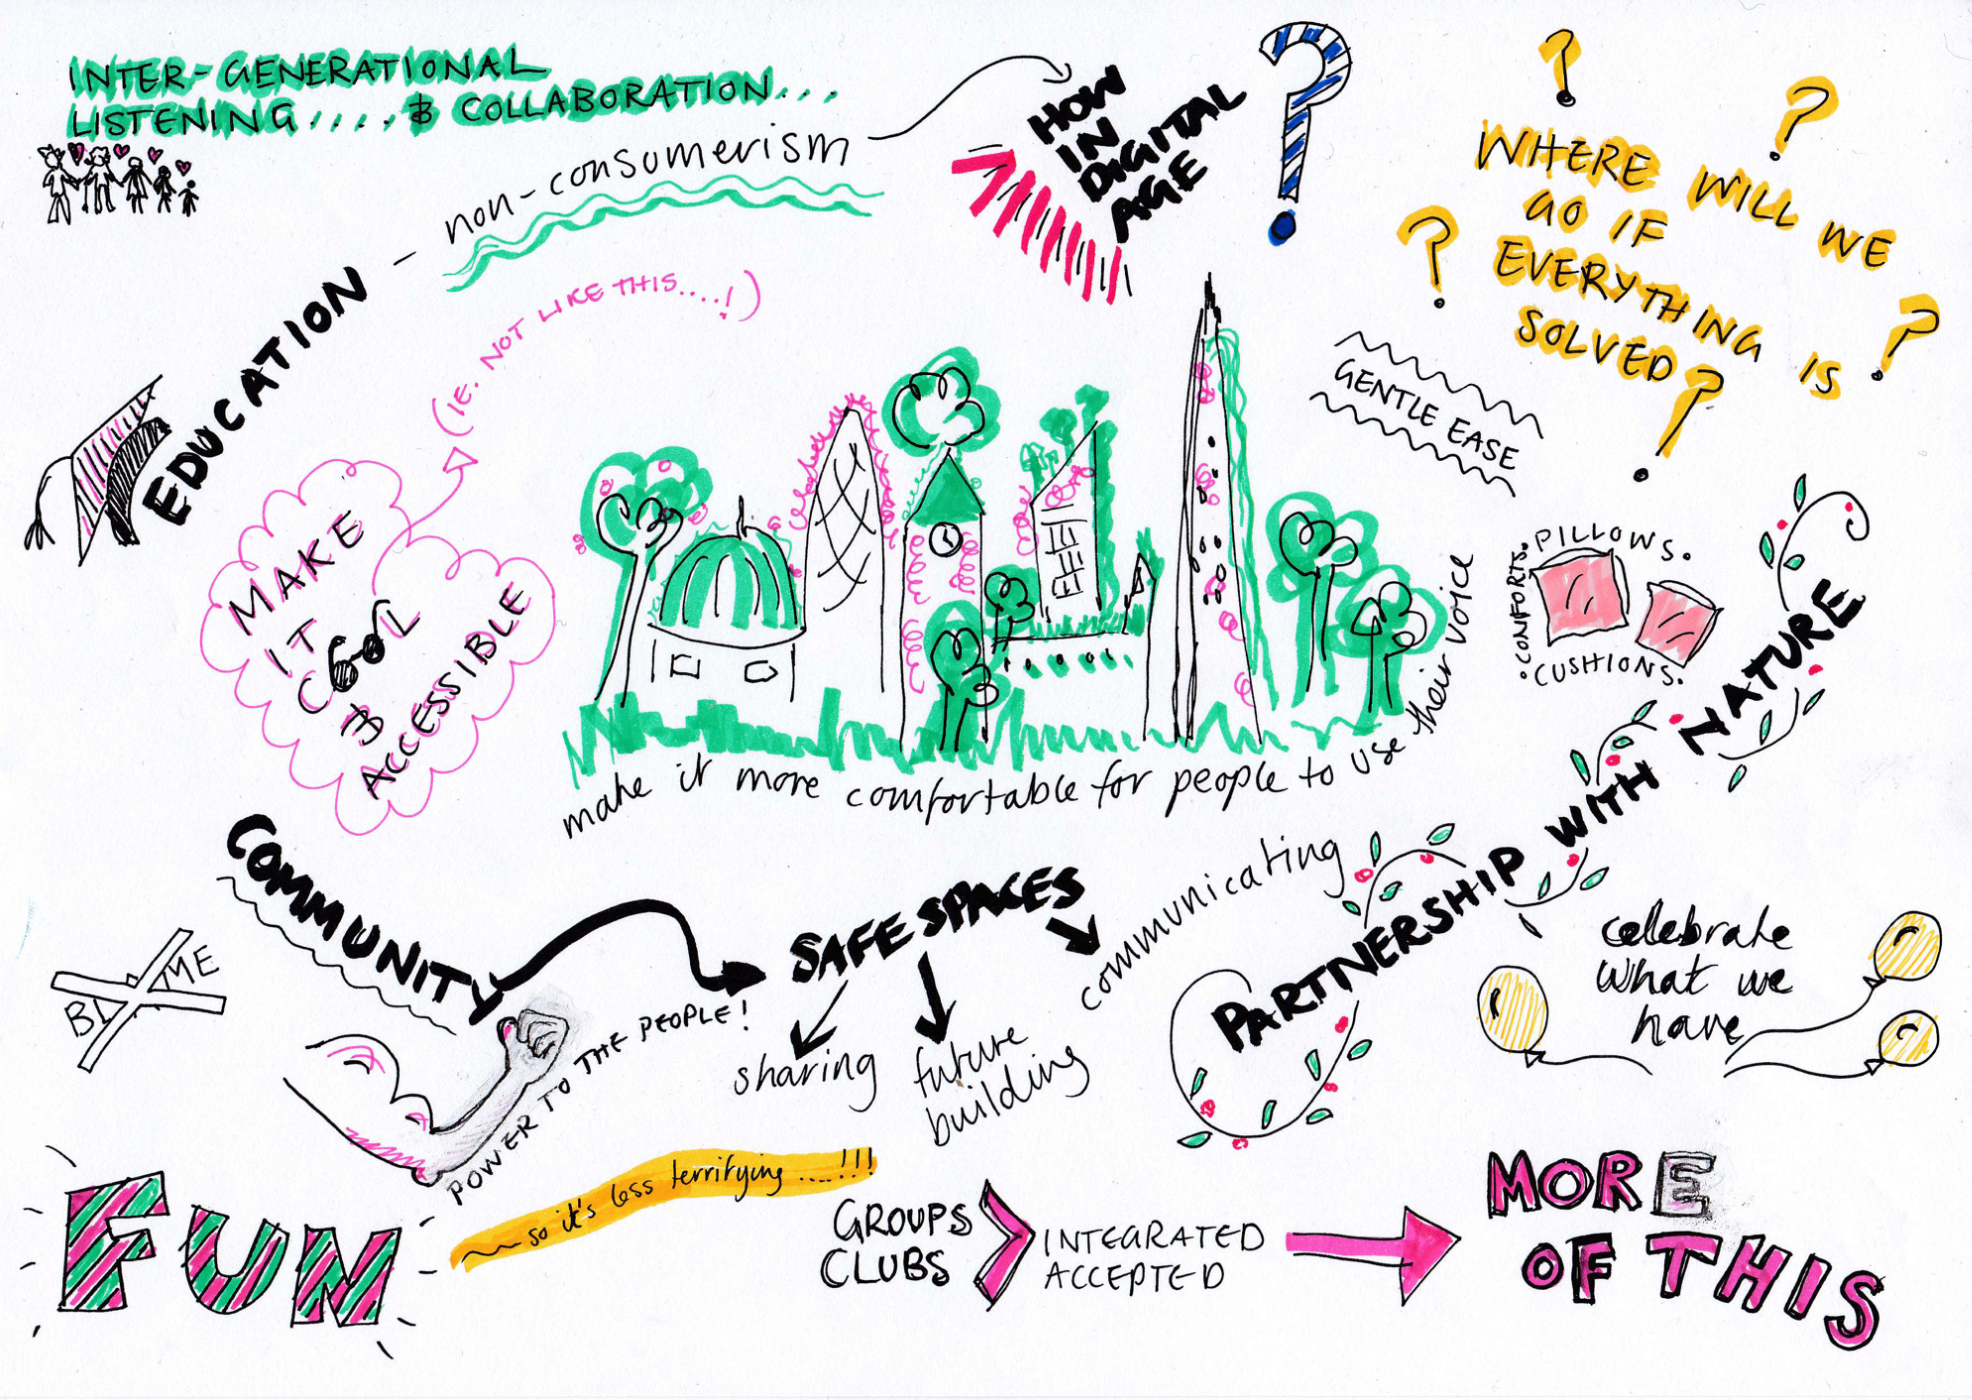 INTER-GENERATIONAL
LISTENING.... & COLLABORATION...
non-consumerism
HOW
IN
DIGITAL
AGE
?
? ?
WHERE WILL WE
GO IF
EVERYTHING IS
SOLVED
? ? ?
EDUCATION -
(IE. NOT LIKE THIS....!)
GENTLE EASE
MAKE
IT
COOL
&
ACCESSIBLE
PILLOWS.
.COMFORTS.
CUSHIONS.
make it more comfortable for people to use their voice
PARTNERSHIP WITH NATURE
COMMUNITY
SAFE SPACES
communicating
sharing
future
building
BLAME
POWER TO THE PEOPLE!
celebrate
what we
have
FUN
so it's less terrifying ....!!!
GROUPS
CLUBS
INTEGRATED
ACCEPTED
MORE
OF THIS